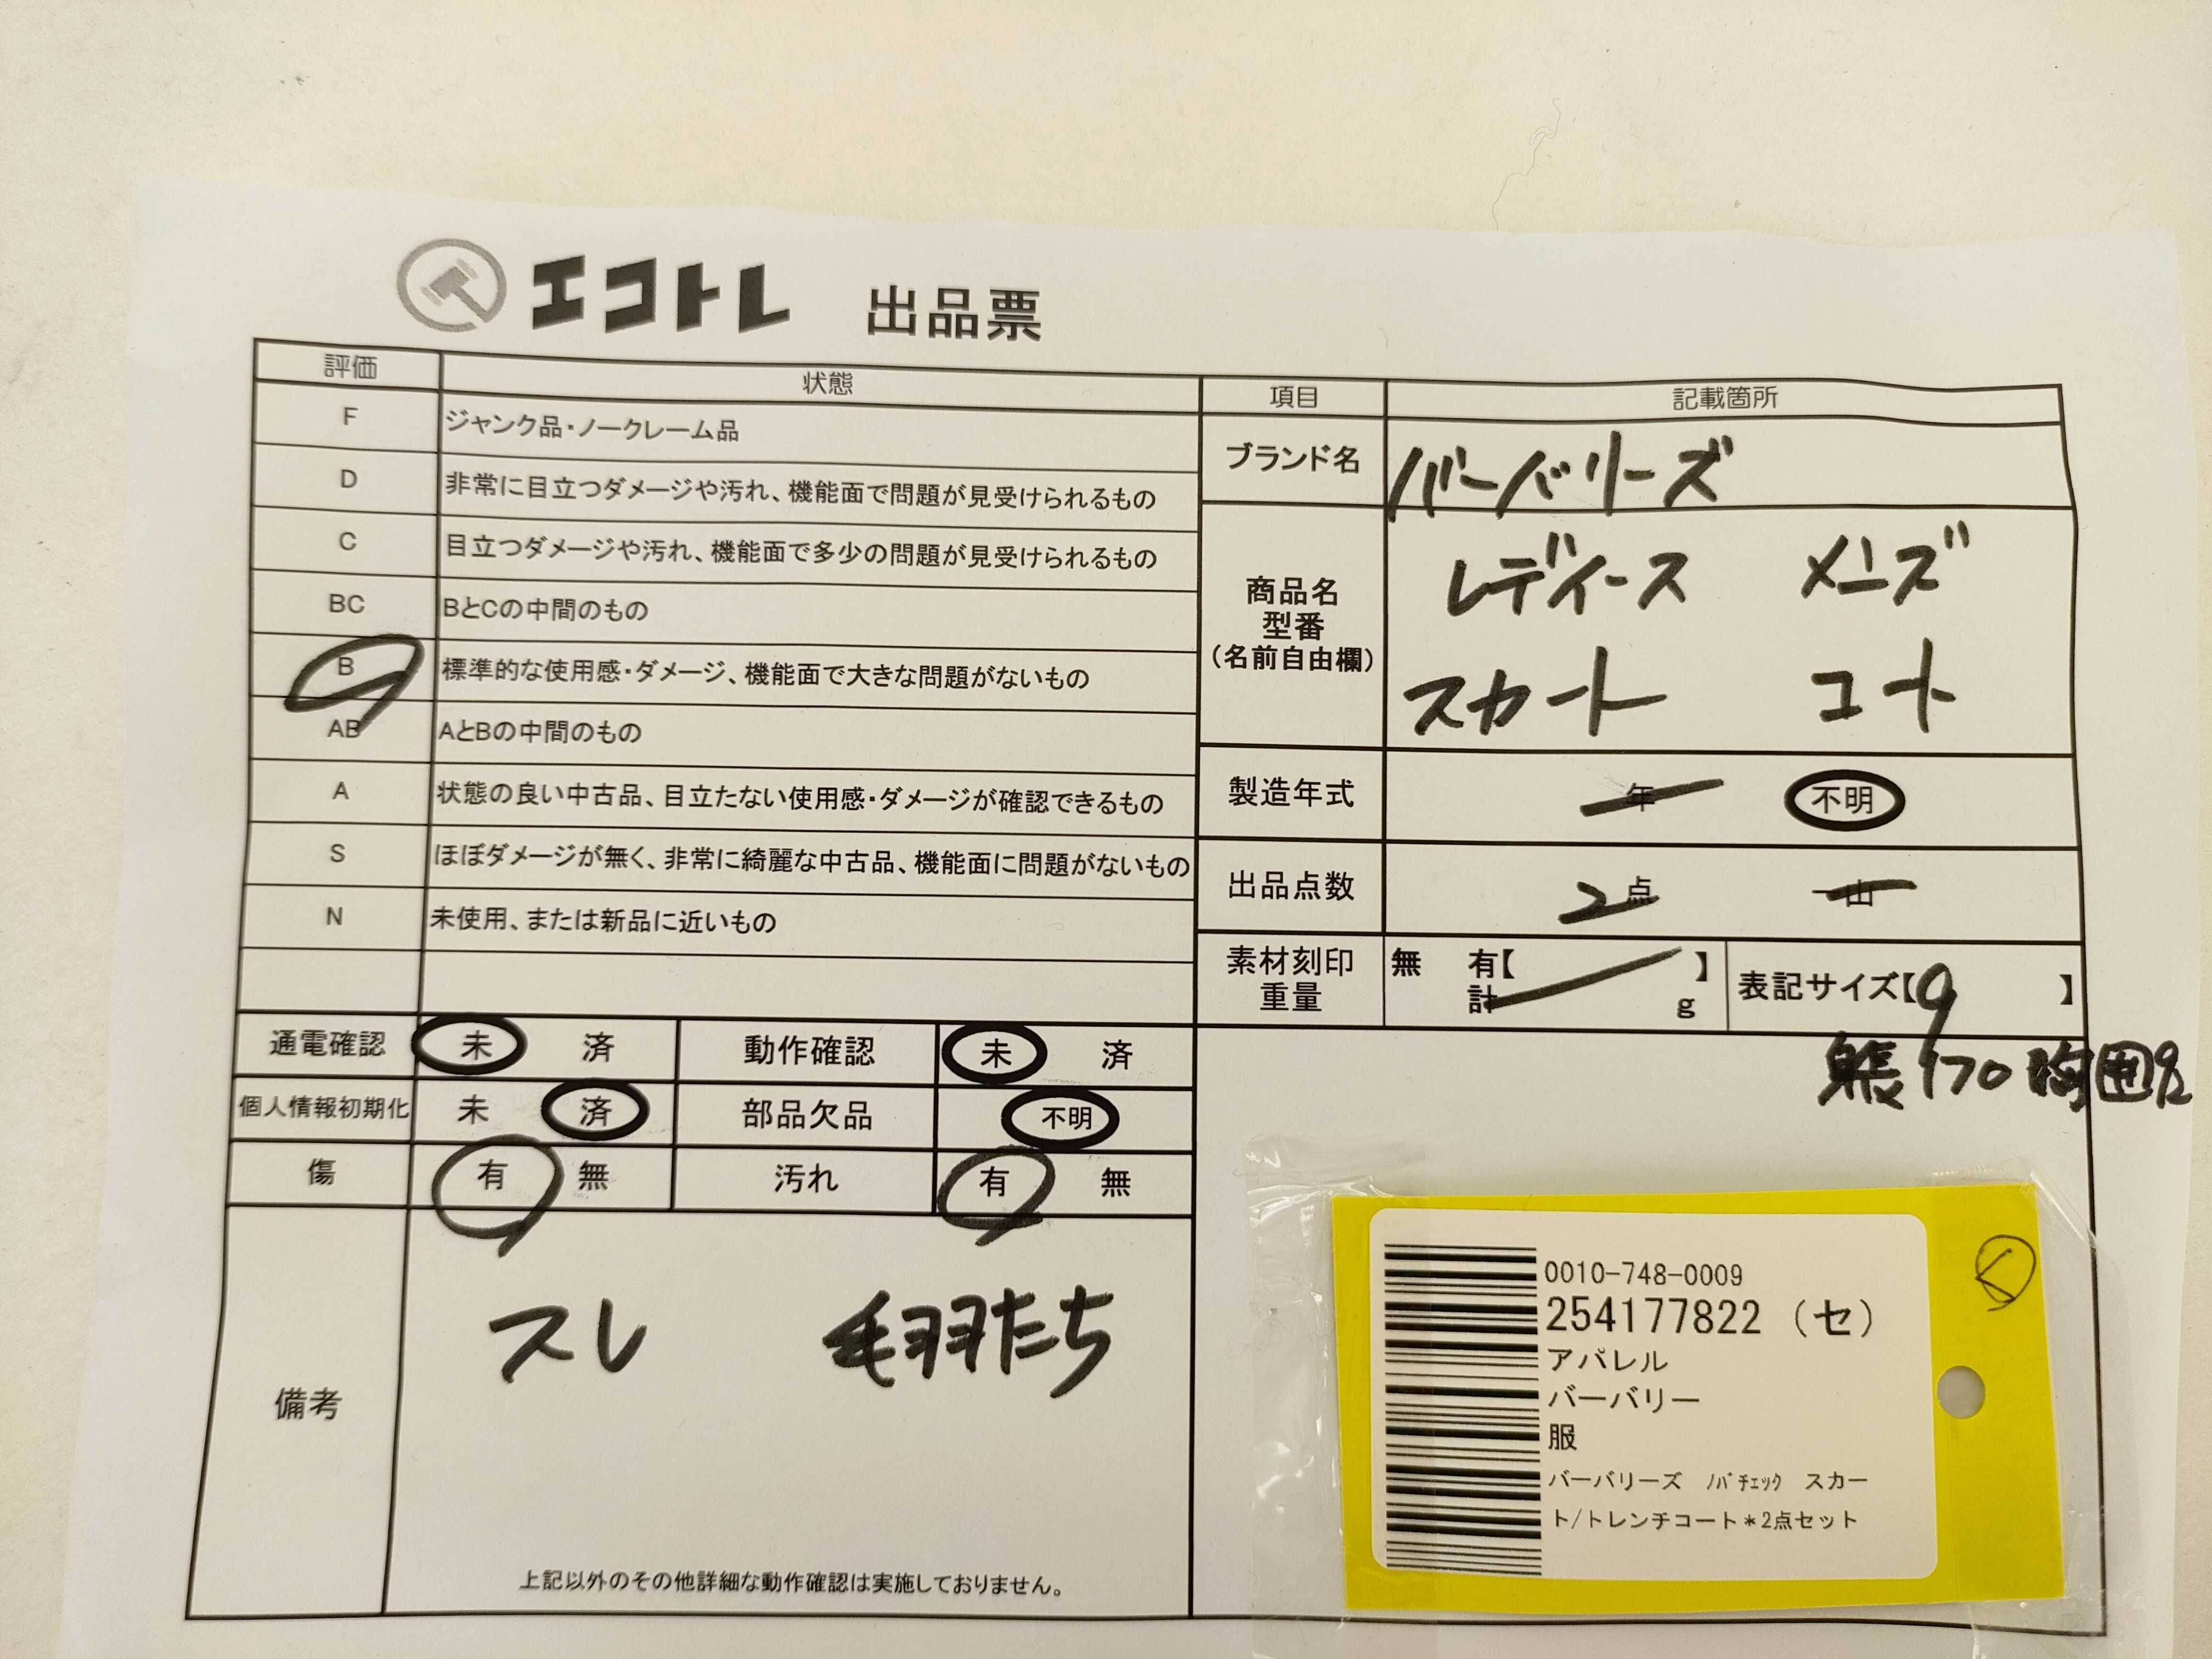 エコトレ 出品票
評価 状態
F ジャンク品・ノークレーム品
D 非常に目立つダメージや汚れ、機能面で問題が見受けられるもの
C 目立つダメージや汚れ、機能面で多少の問題が見受けられるもの
BC BとCの中間のもの
B 標準的な使用感・ダメージ、機能面で大きな問題がないもの
AB AとBの中間のもの
A 状態の良い中古品、目立たない使用感・ダメージが確認できるもの
S ほぼダメージが無く、非常に綺麗な中古品、機能面に問題がないもの
N 未使用、または新品に近いもの
通電確認 未 済 動作確認 未 済
個人情報初期化 未 済 部品欠品 不明
傷 有 無 汚れ 有 無
備考
スレ 毛羽たち
上記以外のその他詳細な動作確認は実施しておりません。
項目 記載箇所
ブランド名 バーバリーズ
商品名
型番
(名前自由欄)
レディース メンズ
スカート コート
製造年式 年 不明
出品点数 2点 山
素材刻印 無 有【 】
重量 計 g
表記サイズ【9 】
身長170 胸囲92
0010-748-0009
254177822 (セ)
アパレル
バーバリー
服
バーバリーズ ﾉﾊﾞﾁｪｯｸ スカー
ト/トレンチコート＊2点セット